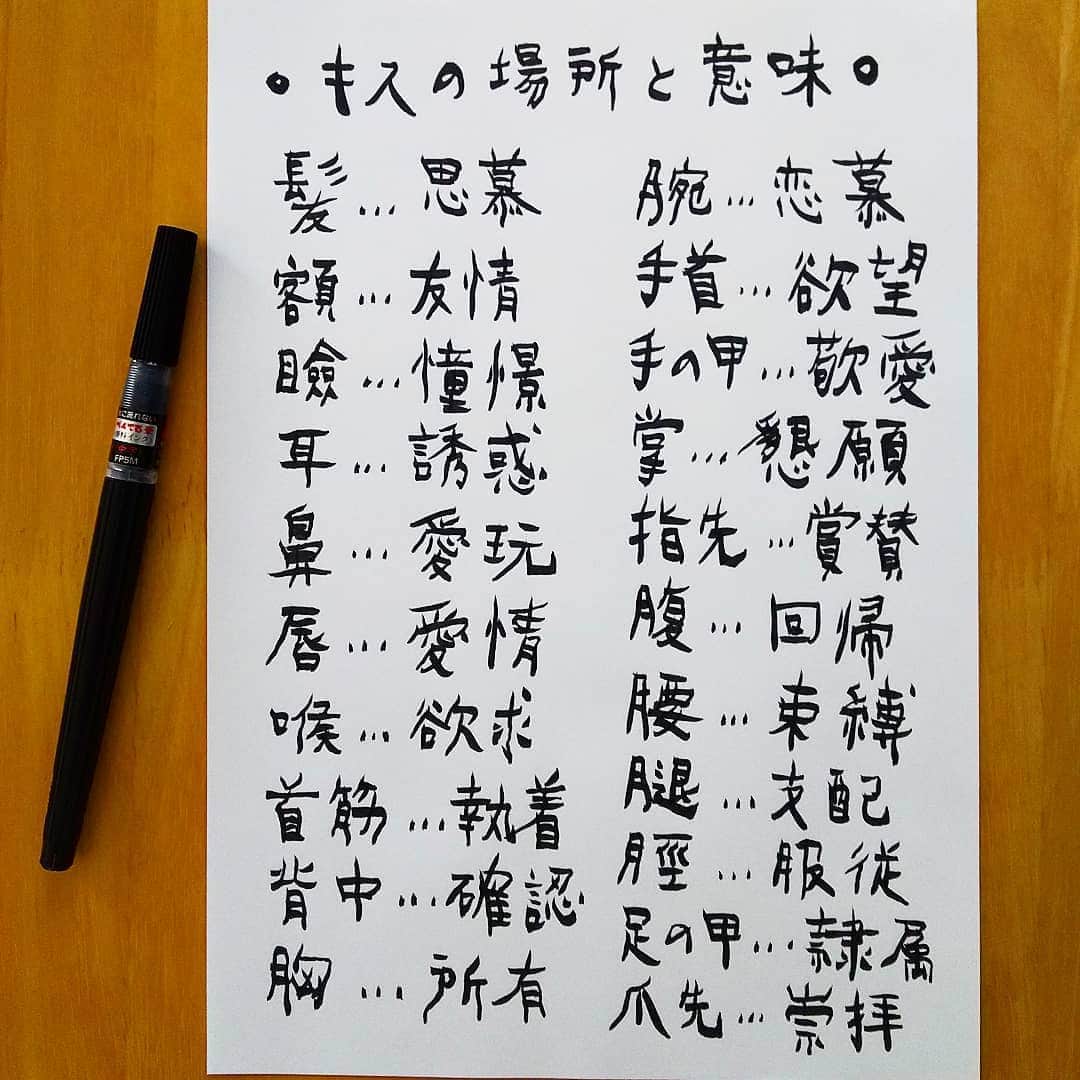 。キスの場所と意味。
髪…思慕
額…友情
瞼…憧憬
耳…誘惑
鼻…愛玩
唇…愛情
喉…欲求
首筋…執着
背中…確認
胸…所有
腕…恋慕
手首…欲望
手の甲…敬愛
掌…懇願
指先…賞賛
腹…回帰
腰…束縛
腿…支配
脛…服従
足の甲…隷属
爪先…崇拝
FP5M